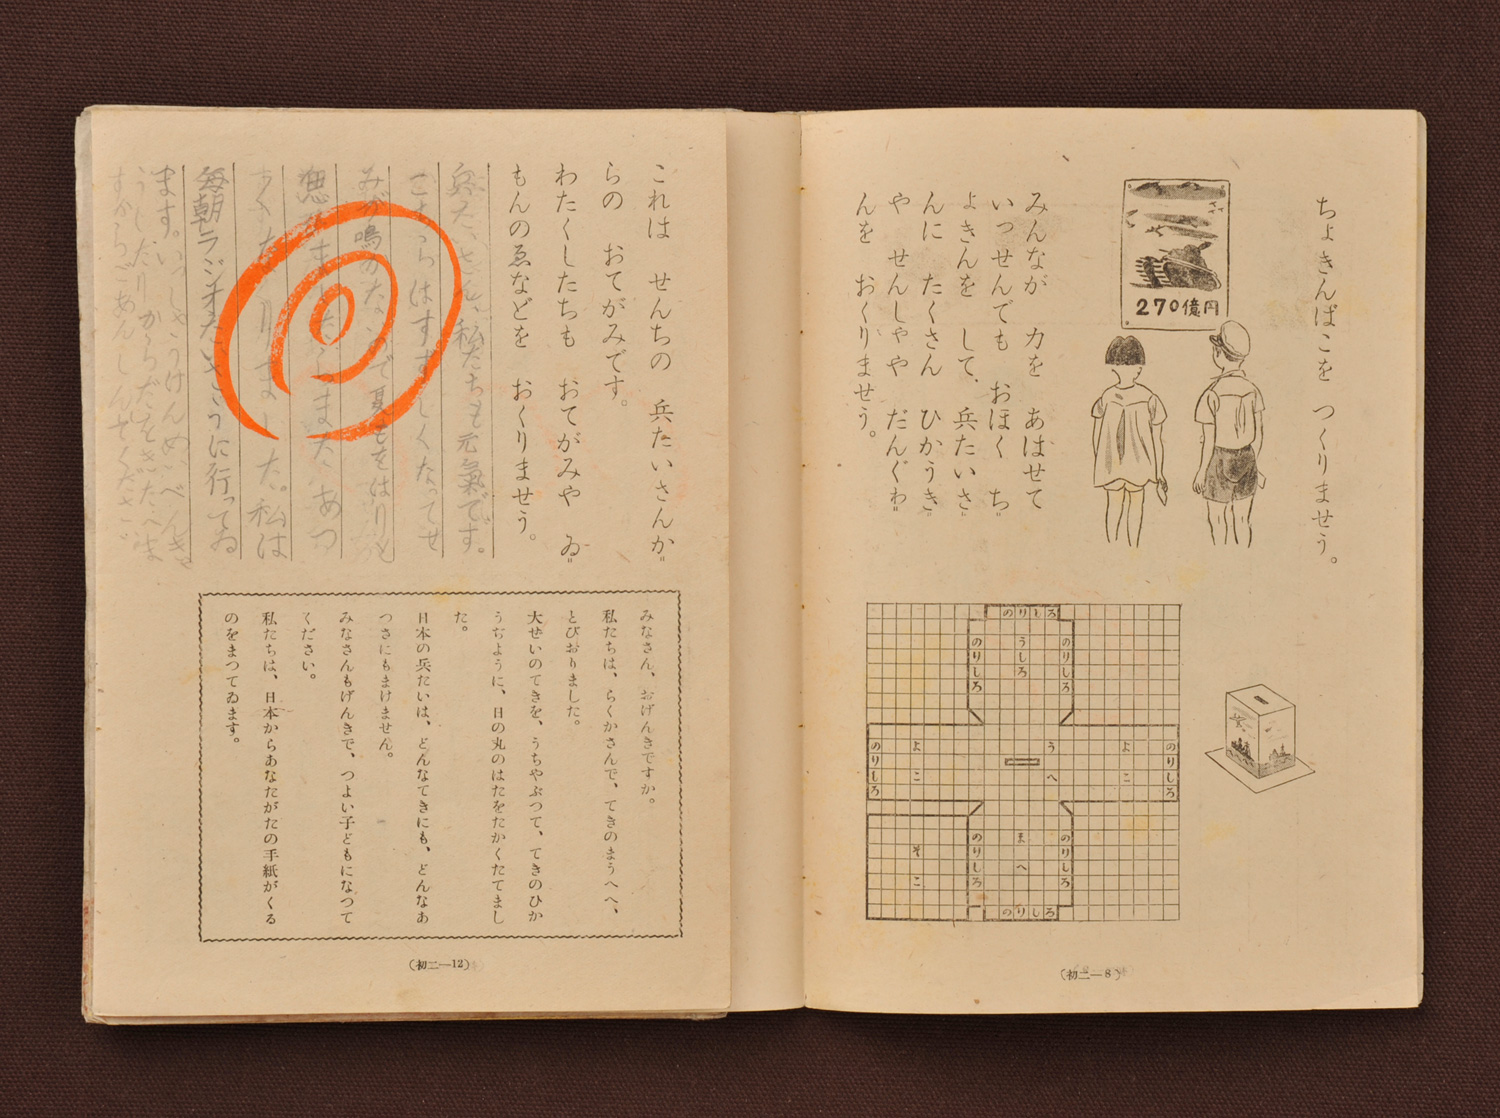 ちょきんばこを つくりませう。
270億円
みんなが 力を あはせて
いつせんでも おほく ち=
ょきんを して、兵たいさ=
んに たくさん ひかうき=
や せんしゃや だんぐわ=
んを おくりませう。
のりしろ
のりしろ
うしろ
のりしろ
のりしろ
よこ
うへ
よこ
のりしろ
のりしろ
まへ
のりしろ
そこ
のりしろ
(初二—8)
これは せんちの 兵たいさんか=
らの おてがみです。
わたくしたちも おてがみや ゐ=
もんの ゑなどを おくりませう。
兵たいさん、私たちも元氣です。
こちらはすずしくなってせ
みが鳴かないので夏もをはりと
思ひましたらまたあつ
くなりました。私は
毎朝ラジオたいさうに行ってゐ
ます。いっしゃうけんめいべんき
うしたり からだをきたへま
すからごあんしんください
みなさん、おげんきですか。
私たちは、らくかさんで、てきのまうへへ、
とびおりました。
大せいのてきを、うちやぶつて、てきのひか
うぢように、日の丸のはたをたかくたてまし
た。
日本の兵たいは、どんなてきにも、どんなあ
つさにもまけません。
みなさんもげんきで、つよい子どもになつて
ください。
私たちは、日本からあなたがたの手紙がくる
のをまつてゐます。
(初二—12)